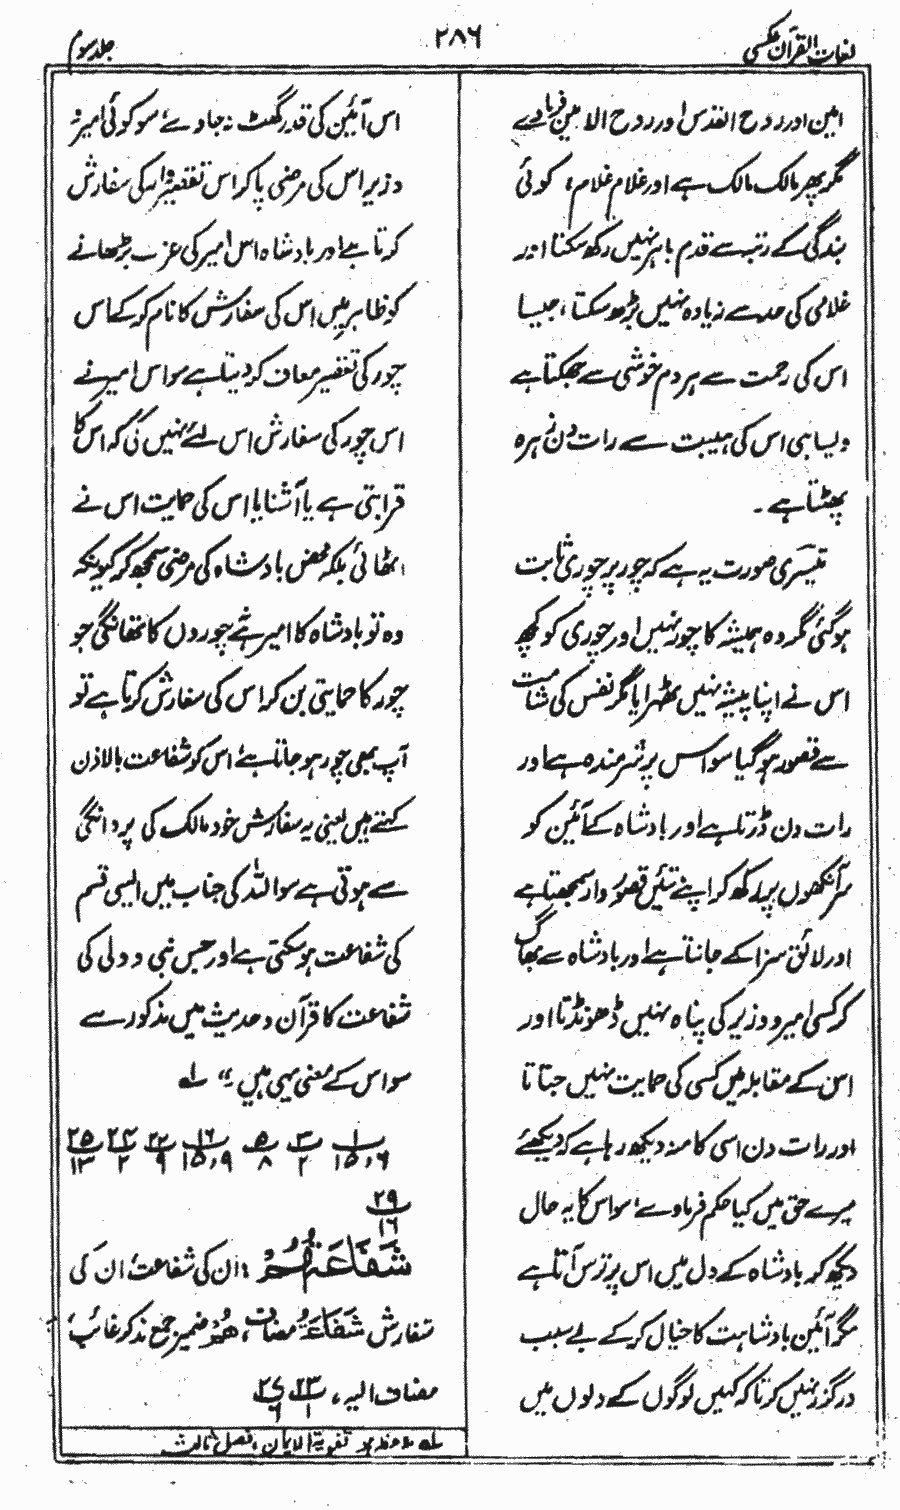 لغات القرآن عکسی
۲۸۶
جلد سوم
امین اور روح القدس اور روح الامین فرما دے
مگر پھر مالک مالک ہے اور غلام غلام، کوئی
بندگی کے رتبہ سے قدم باہر نہیں رکھ سکتا اور
غلامی کی حد سے زیادہ نہیں بڑھ سکتا، جیسا
اس کی رحمت سے ہر دم خوشی سے جھکتا ہے
ویسا ہی اس کی ہیبت سے رات دن زہرہ
پھٹتا ہے۔
تیسری صورت یہ ہے کہ چور پر چوری ثابت
ہو گئی مگر وہ ہمیشہ کا چور نہیں اور چوری کو کچھ
اس نے اپنا پیشہ نہیں ٹھہرایا مگر نفس کی شامت
سے قصور ہو گیا سو اس پر شرمندہ ہے اور
رات دن ڈرتا ہے اور بادشاہ کے آئین کو
سر آنکھوں پر رکھ کر اپنے تئیں قصور وار سمجھتا ہے
اور لائق سزا کے جانتا ہے اور بادشاہ سے بھاگ
کر کسی امیر و وزیر کی پناہ نہیں ڈھونڈتا اور
اس کے مقابلہ میں کسی کی حمایت نہیں جتاتا
اور رات دن اسی کا منہ دیکھ رہا ہے کہ دیکھئے
میرے حق میں کیا حکم فرماوے، سو اس کا یہ حال
دیکھ کر بادشاہ کے دل میں اس پر ترس آتا ہے
مگر آئین بادشاہت کا خیال کر کے بے سبب
درگزر نہیں کرتا کہ کہیں لوگوں کے دلوں میں
اس آئین کی قدر گھٹ نہ جاوے، سو کوئی امیر و
وزیر اس کی مرضی پا کر اس تقصیر وار کی سفارش
کرتا ہے اور بادشاہ اس امیر کی عزت بڑھانے
کو ظاہر میں اس کی سفارش کا نام کر کے اس
چور کی تقصیر معاف کر دیتا ہے سو اس امیر نے
اس چور کی سفارش اس لئے نہیں کی کہ اس کا
قرابتی ہے یا آشنا یا اس کی حمایت اس نے
اٹھائی بلکہ محض بادشاہ کی مرضی سمجھ کر کیونکہ
وہ تو بادشاہ کا امیر ہے چوروں کا تھانگی جو
چور کا حمایتی بن کر اس کی سفارش کرتا ہے تو
آپ بھی چور ہو جاتا ہے، اس کو شفاعت بالاذن
کہتے ہیں یعنی یہ سفارش خود مالک کی پروانگی
سے ہوتی ہے سو اللہ کی جناب میں ایسی قسم
کی شفاعت ہو سکتی ہے اور جس نبی و ولی کی
شفاعت کا قرآن و حدیث میں مذکور ہے
سو اس کے معنی یہی ہیں" لہ
۱/۱۵،۶ ۳/۲ ۵/۸ ۱۶/۱۵،۹ ۲۲/۹ ۲۴/۲ ۲۵/۱۳
۲۹/۱۶
شَفَاعَتُهُمْ: ان کی شفاعت، ان کی
سفارش شَفَاعَةُ مضاف، هُمْ ضمیر جمع مذکر غائب،
مضاف الیہ، ۲۳/۱ ۲۷/۶
لہ ملاحظہ ہو تقویۃ الایمان، فصل ثالث